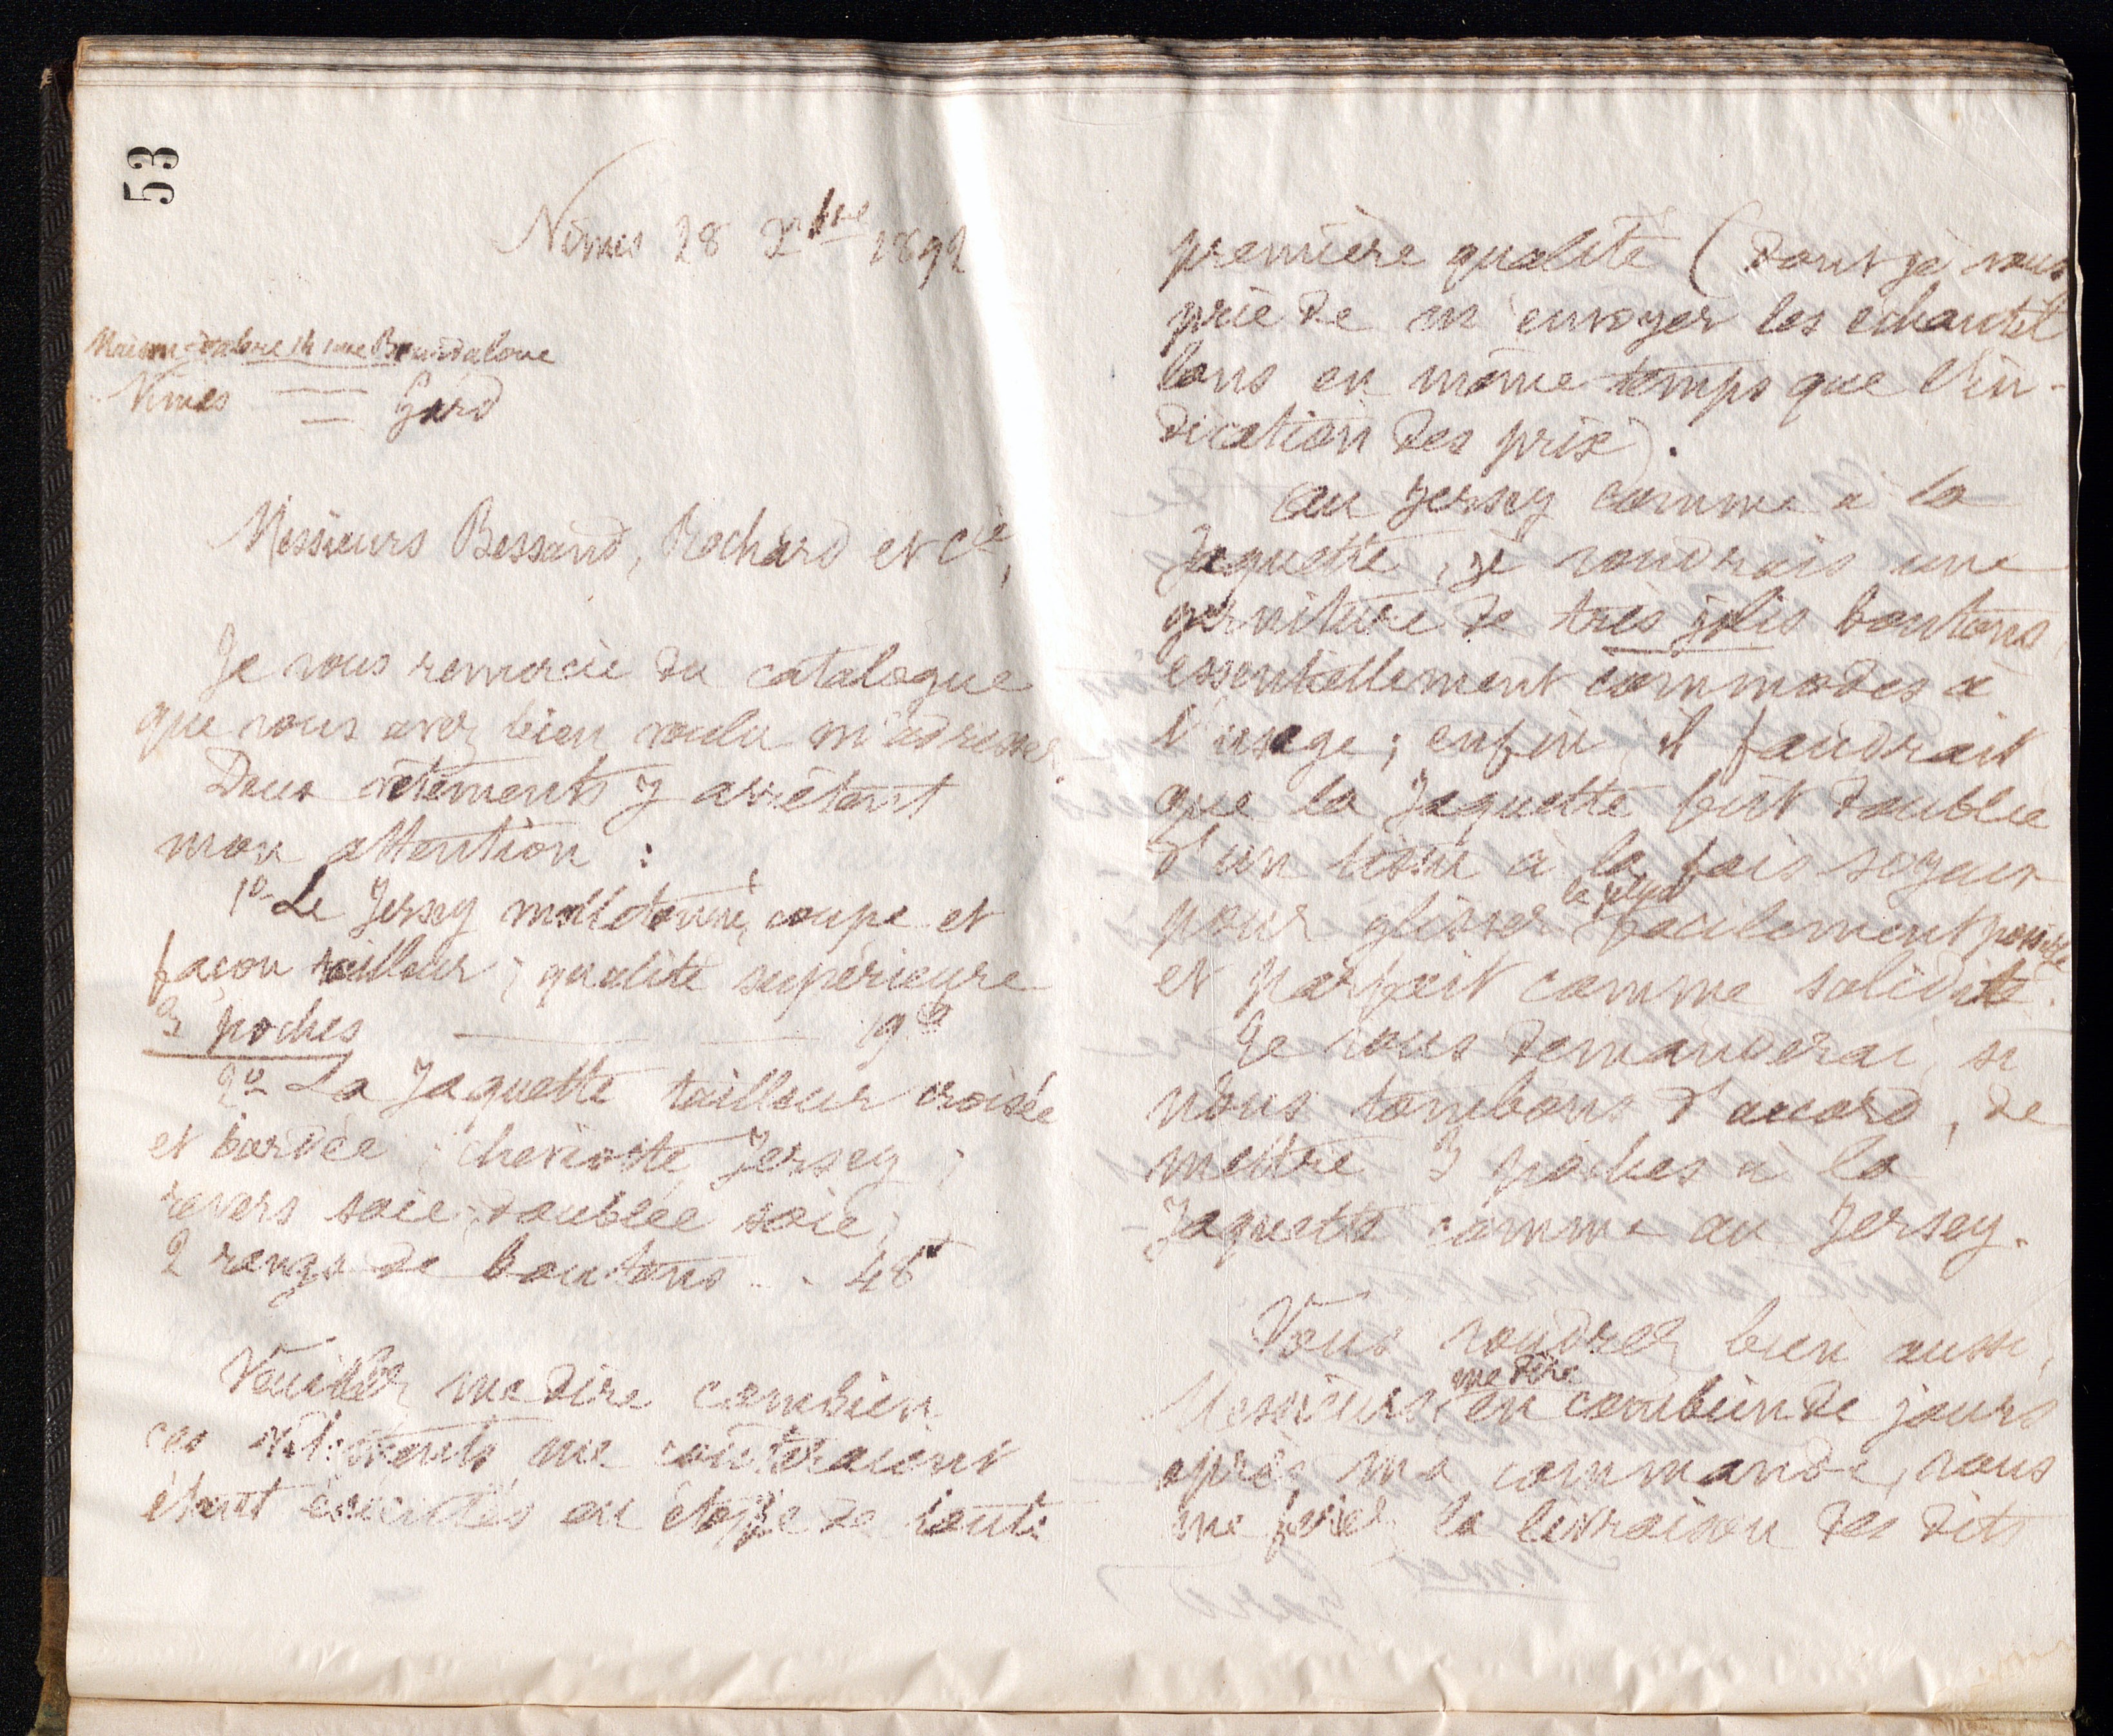 53
Nîmes 28 Xbre 1892
Maison Dalore 14 rue Bourdaloue
Nîmes = Gard
Messieurs Bessand, Rochard et Cie,
Je vous remercie du catalogue
que vous avez bien voulu m'adresser.
Deux vêtements y arrêtent
mon attention :
1º Le Jersey molletonné, coupe et
façon tailleur ; qualité supérieure
3 poches — — 19
2º La Jaquette tailleur croisée
et bordée ; cheviotte Jersey ;
revers soie ; doublée soie ;
2 rangs de boutons - . 48f
Veuillez me dire combien
ces vêtements me coûteraient
étant exécutés en étoffe de toute
première qualité (dont je vous
prie de m'envoyer les échantil
lons en même temps que l'in-
dication des prix).
au Jersey comme à la
Jaquette, je voudrais une
garniture de très jolis boutons,
essentiellement commodes à
l'usage ; enfin, il faudrait
que la Jaquette fût doublée
d'un tissu à la fois soyeux
pour glisser le plus facilement possible
et parfait comme solidité.
Je vous demanderai, si
nous tombons d'accord, de
mettre 3 poches à la
Jaquette comme au Jersey.
Vous voudrez bien aussi,
Messieurs, me dire en combien de jours
après ma commande, vous
me feriez la livraison des dits